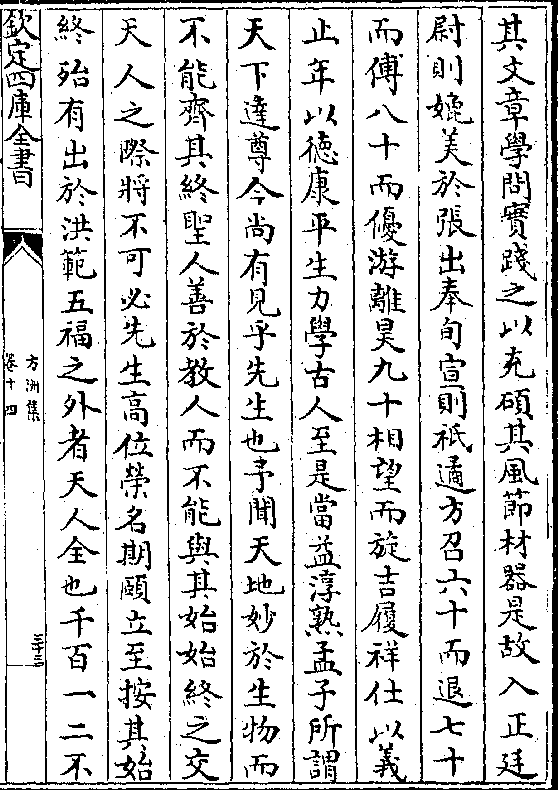 其文章學問實踐之以充碩其風節材器是故入正廷
尉則媲美於張出奉旬宣則祇遹方召六十而退七十
而傅八十而優游離昊九十相望而旋吉履祥仕以義
止年以徳康平生力學古人至是當益淳熟孟子所謂
天下達尊今尚有見乎先生也予聞天地妙於生物而
不能齊其終聖人善於教人而不能與其始始終之交
天人之際將不可必先生髙位榮名期頤立至按其始
終殆有出於洪範五福之外者天人全也千百一二不
欽定四庫全書
方洲集
卷十四
三十三